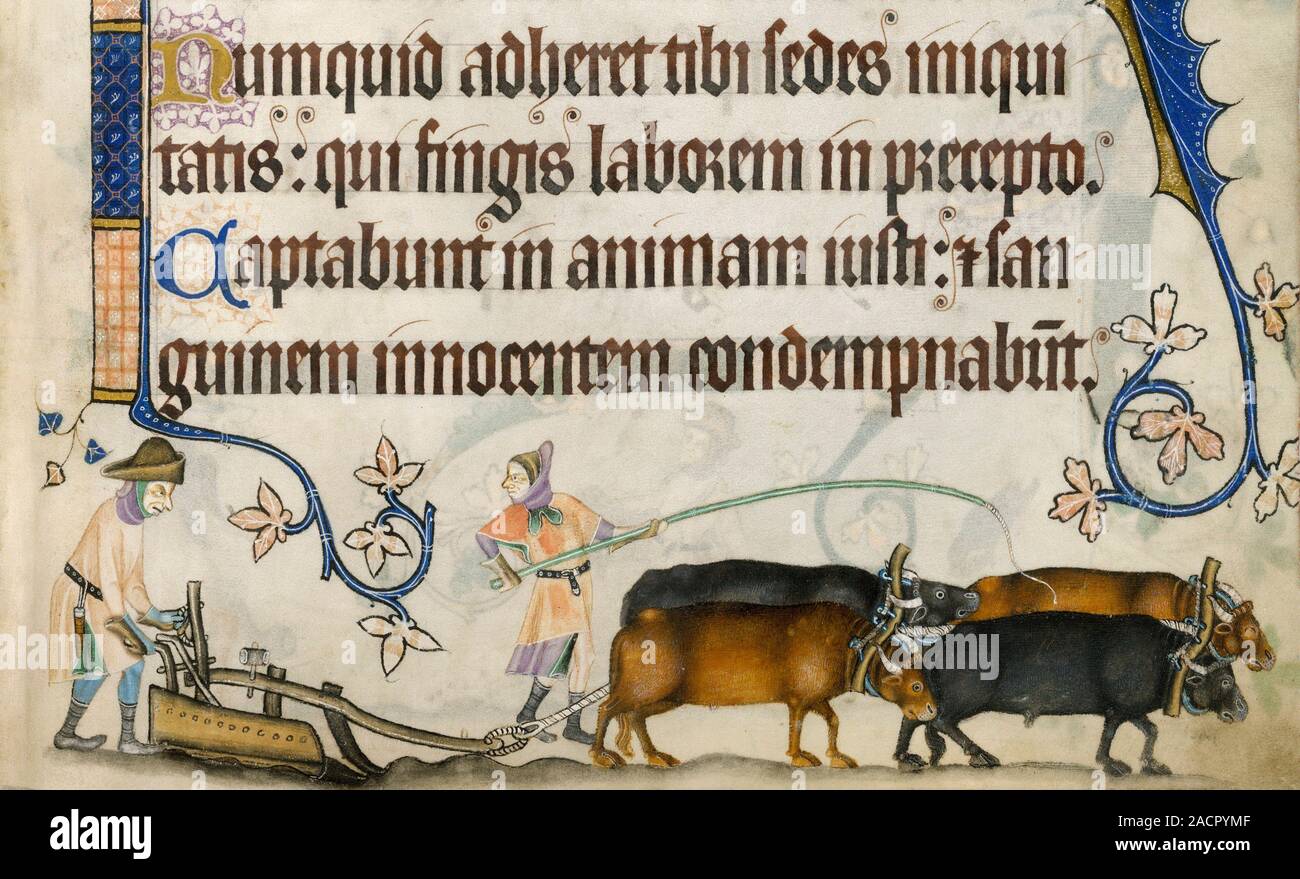 Numquid adheret tibi sedes iniqui
tatis: qui fingis laborem in precepto.
Captabunt in animam iusti: ⁊ san
guinem innocentem condempnabūt.
alamy
Image ID: 2ACPYMF
www.alamy.com